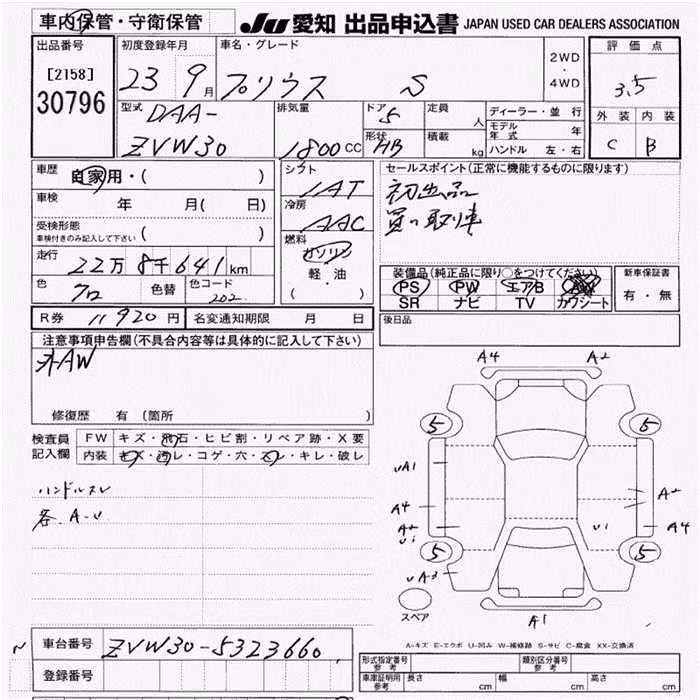 車内保管・守衛保管
JU 愛知 出品申込書 JAPAN USED CAR DEALERS ASSOCIATION
出品番号
[2158]
30796
初度登録年月
23 9月
車名・グレード
プリウス S
2WD
・
4WD
評価点
3.5
外装 内装
C B
型式
DAA-
ZVW30
排気量
1800CC
ドア
5
形状
HB
定員
人
積載
kg
ディーラー・並行
モデル年式 年
ハンドル 左・右
車歴
自家用・( )
車検
年 月( 日)
受検形態
車検付きのみ記入して下さい ( )
走行
22万8千641km
色
クロ
色替
色コード
202
シフト
IAT
冷房
AAC
燃料
ガソリン
軽・油
( )
セールスポイント(正常に機能するものに限ります)
初出品
買い取り車
装備品(純正品に限り○をつけてください)
PS PW エアB AW
SR ナビ TV カワシート
新車保証書
有・無
R券 11920円
名変通知期限 月 日
後日品
注意事項申告欄(不具合内容等は具体的に記入して下さい)
外AW
修復歴 有(箇所 )
検査員
記入欄
FW キズ・飛石・ヒビ割・リペア跡・X要
内装 キズ・汚レ・コゲ・穴・スレ・キレ・破レ
ハンドルスレ
各 A-U
A4 A2
5 5
UA1
A2
A4
A2
Ui
U1
A4
5 5
UA3
A1
スペア
A-キズ E-エクボ U-凹み W-補修跡 S-サビ C-腐食 XX-交換済
車台番号 ZVW30-5323660
登録番号
形式指定番号
参考
類別区分番号
参考
車庫証明用
参考
長さ cm
幅 cm
高さ cm